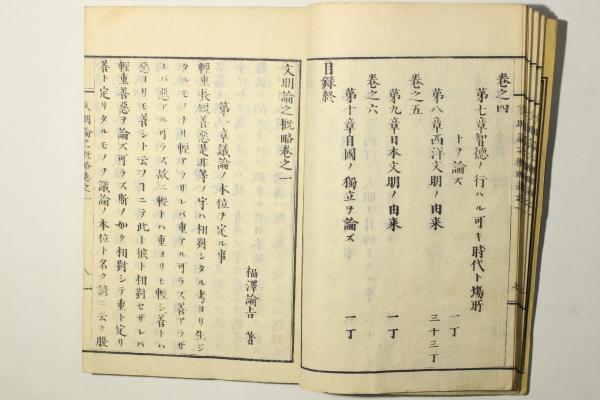 巻之四
第七章智德ノ行ハル可キ時代ト場所
トヲ論ズ 一丁
第八章西洋文明ノ由来 三十三丁
巻之五
第九章日本文明ノ由来 一丁
巻之六
第十章自國ノ獨立ヲ論ズ 一丁
目録終
文明論之概略巻之一
福澤諭吉 著
第一章議論ノ本位ヲ定ル事
輕重長短善惡是非等ノ字ハ相對シタル考ヨリ生ジ
タルモノナリ輕アラザレバ重アル可ラズ善アラザ
レバ惡アル可ラズ故ニ輕トハ重ヨリモ輕シ善トハ
惡ヨリモ善シト云フヿニテ此ト彼ト相對セザレバ
輕重善惡ヲ論ズ可ラズ斯ノ如ク相對シテ重ト定リ
善ト定リタルモノヲ議論ノ本位ト名ク諺ニ云ク腹
文明論之概略巻之一